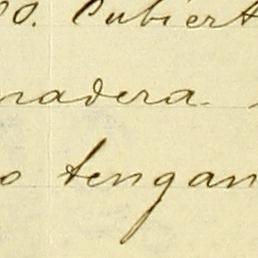 00. Cubiert
madera.
o tengan